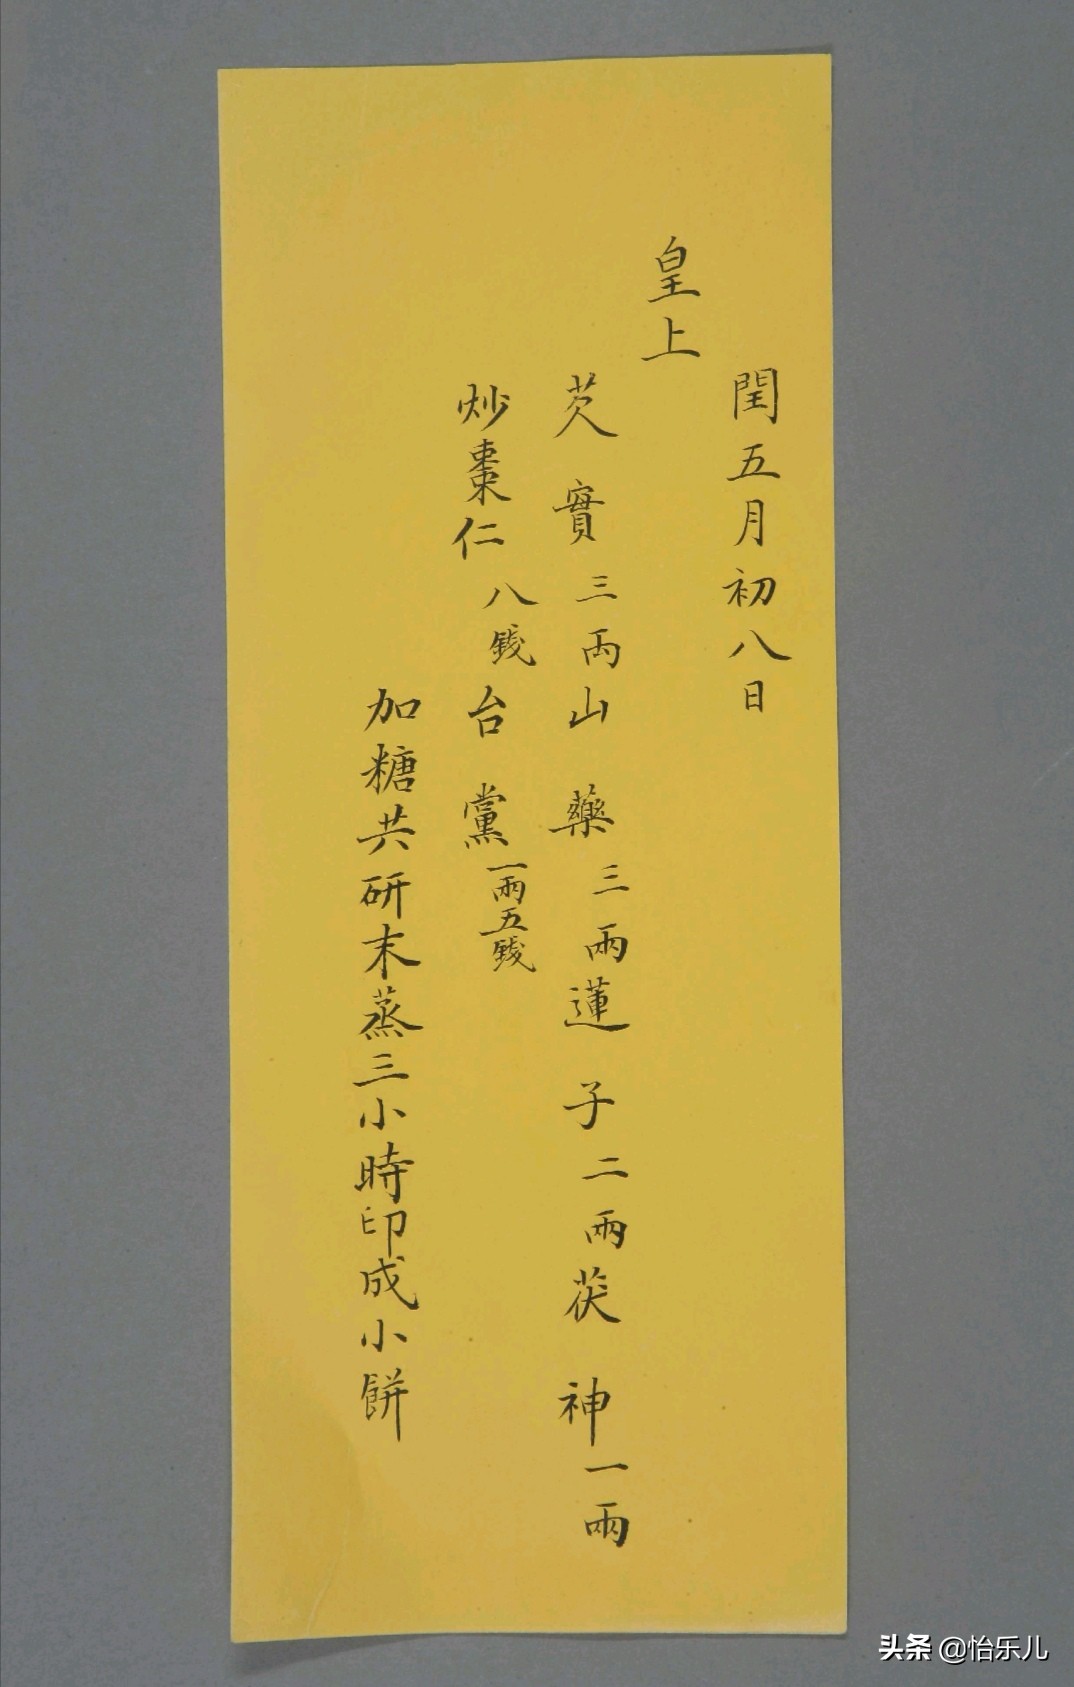 閏五月初八日
皇上
芡實三兩山藥三兩蓮子二兩茯神一兩
炒棗仁八錢台黨一兩五錢
加糖共研末蒸三小時印成小餅
头条 @怡乐儿